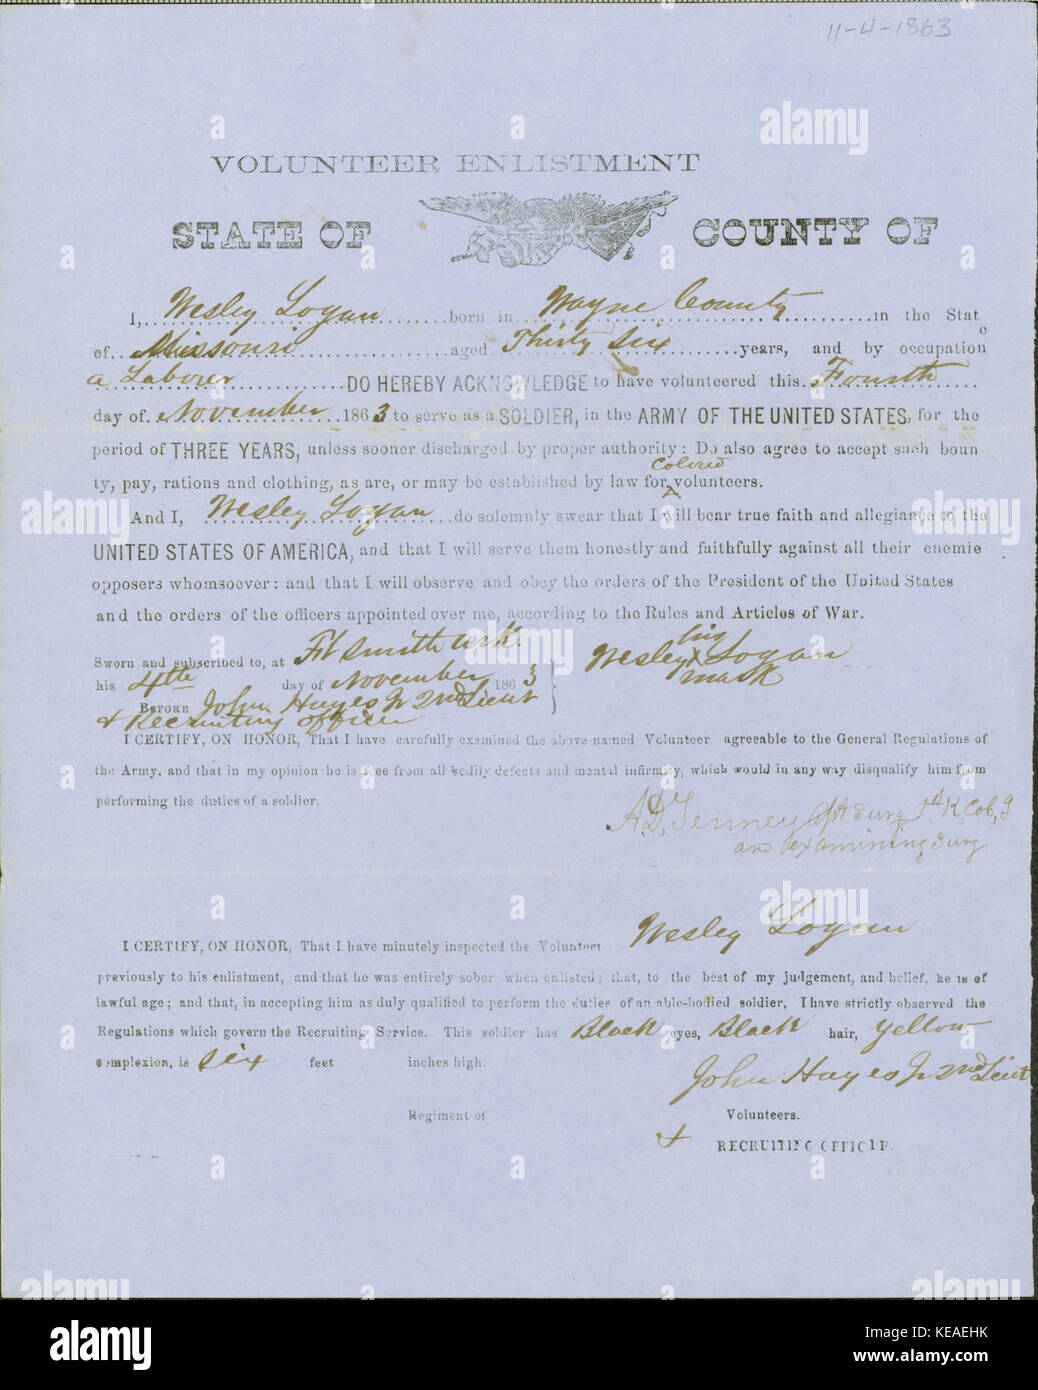 11-4-1863
VOLUNTEER ENLISTMENT
STATE OF COUNTY OF
I, Wesley Logan born in Wayne County in the State
of Missouri aged Thirty Six years, and by occupation
a Laborer DO HEREBY ACKNOWLEDGE to have volunteered this Fourth
day of November 1863 to serve as a SOLDIER, in the ARMY OF THE UNITED STATES, for the
period of THREE YEARS, unless sooner discharged by proper authority: Do also agree to accept such boun
colored
ty, pay, rations and clothing, as are, or may be established by law for volunteers.
And I, Wesley Logan do solemnly swear that I will bear true faith and allegiance to the
UNITED STATES OF AMERICA, and that I will serve them honestly and faithfully against all their enemie
opposers whomsoever: and that I will observe and obey the orders of the President of the United States
and the orders of the officers appointed over me, according to the Rules and Articles of War.
Sworn and subscribed to, at Ft Smith Ark.
his 4th day of November 1863
BEFORE John Hayes Jr 2nd Lieut
& Recruiting officer
his
Wesley X Logan
mark
I CERTIFY, ON HONOR, That I have carefully examined the above named Volunteer agreeable to the General Regulations of
the Army, and that in my opinion he is free from all bodily defects and mental infirmity, which would in any way disqualify him from
performing the duties of a soldier.
A. D. Tenney Asst Surg 1st K. Col,
and examining Surg
I CERTIFY, ON HONOR, That I have minutely inspected the Volunteer Wesley Logan
previously to his enlistment, and that he was entirely sober when enlisted; that, to the best of my judgement, and belief, he is of
lawful age; and that, in accepting him as duly qualified to perform the duties of an able-bodied soldier, I have strictly observed the
Regulations which govern the Recruiting Service. This soldier has Black eyes, Black hair, yellow
complexion, is six feet inches high.
John Hayes Jr 2nd Lieut
Regiment of Volunteers.
& RECRUITING OFFICER.
alamy
a
alamy
Image ID: KEAEHK
www.alamy.com